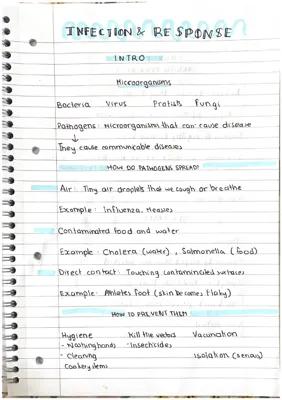 INFECTION & RESPONSE
INTRO
Microorganisms
Bacteria Virus Protists Fungi
Pathogens: Microorganisms that can cause disease
↓
They cause communicable diseases
HOW DO PATHOGENS SPREAD?
Air: Tiny air droplets that we cough or breathe
Example: Influenza, Measles
Contaminated food and water
Example: Cholera (water), Salmonella (food)
Direct contact: Touching contaminated surfaces
Example: Athletes foot (skin becomes flaky)
HOW TO PREVENT THEM
Hygiene Kill the vector Vaccination
- Washing hands - Insecticides
- Cleaning Isolation (serious)
Cookery items